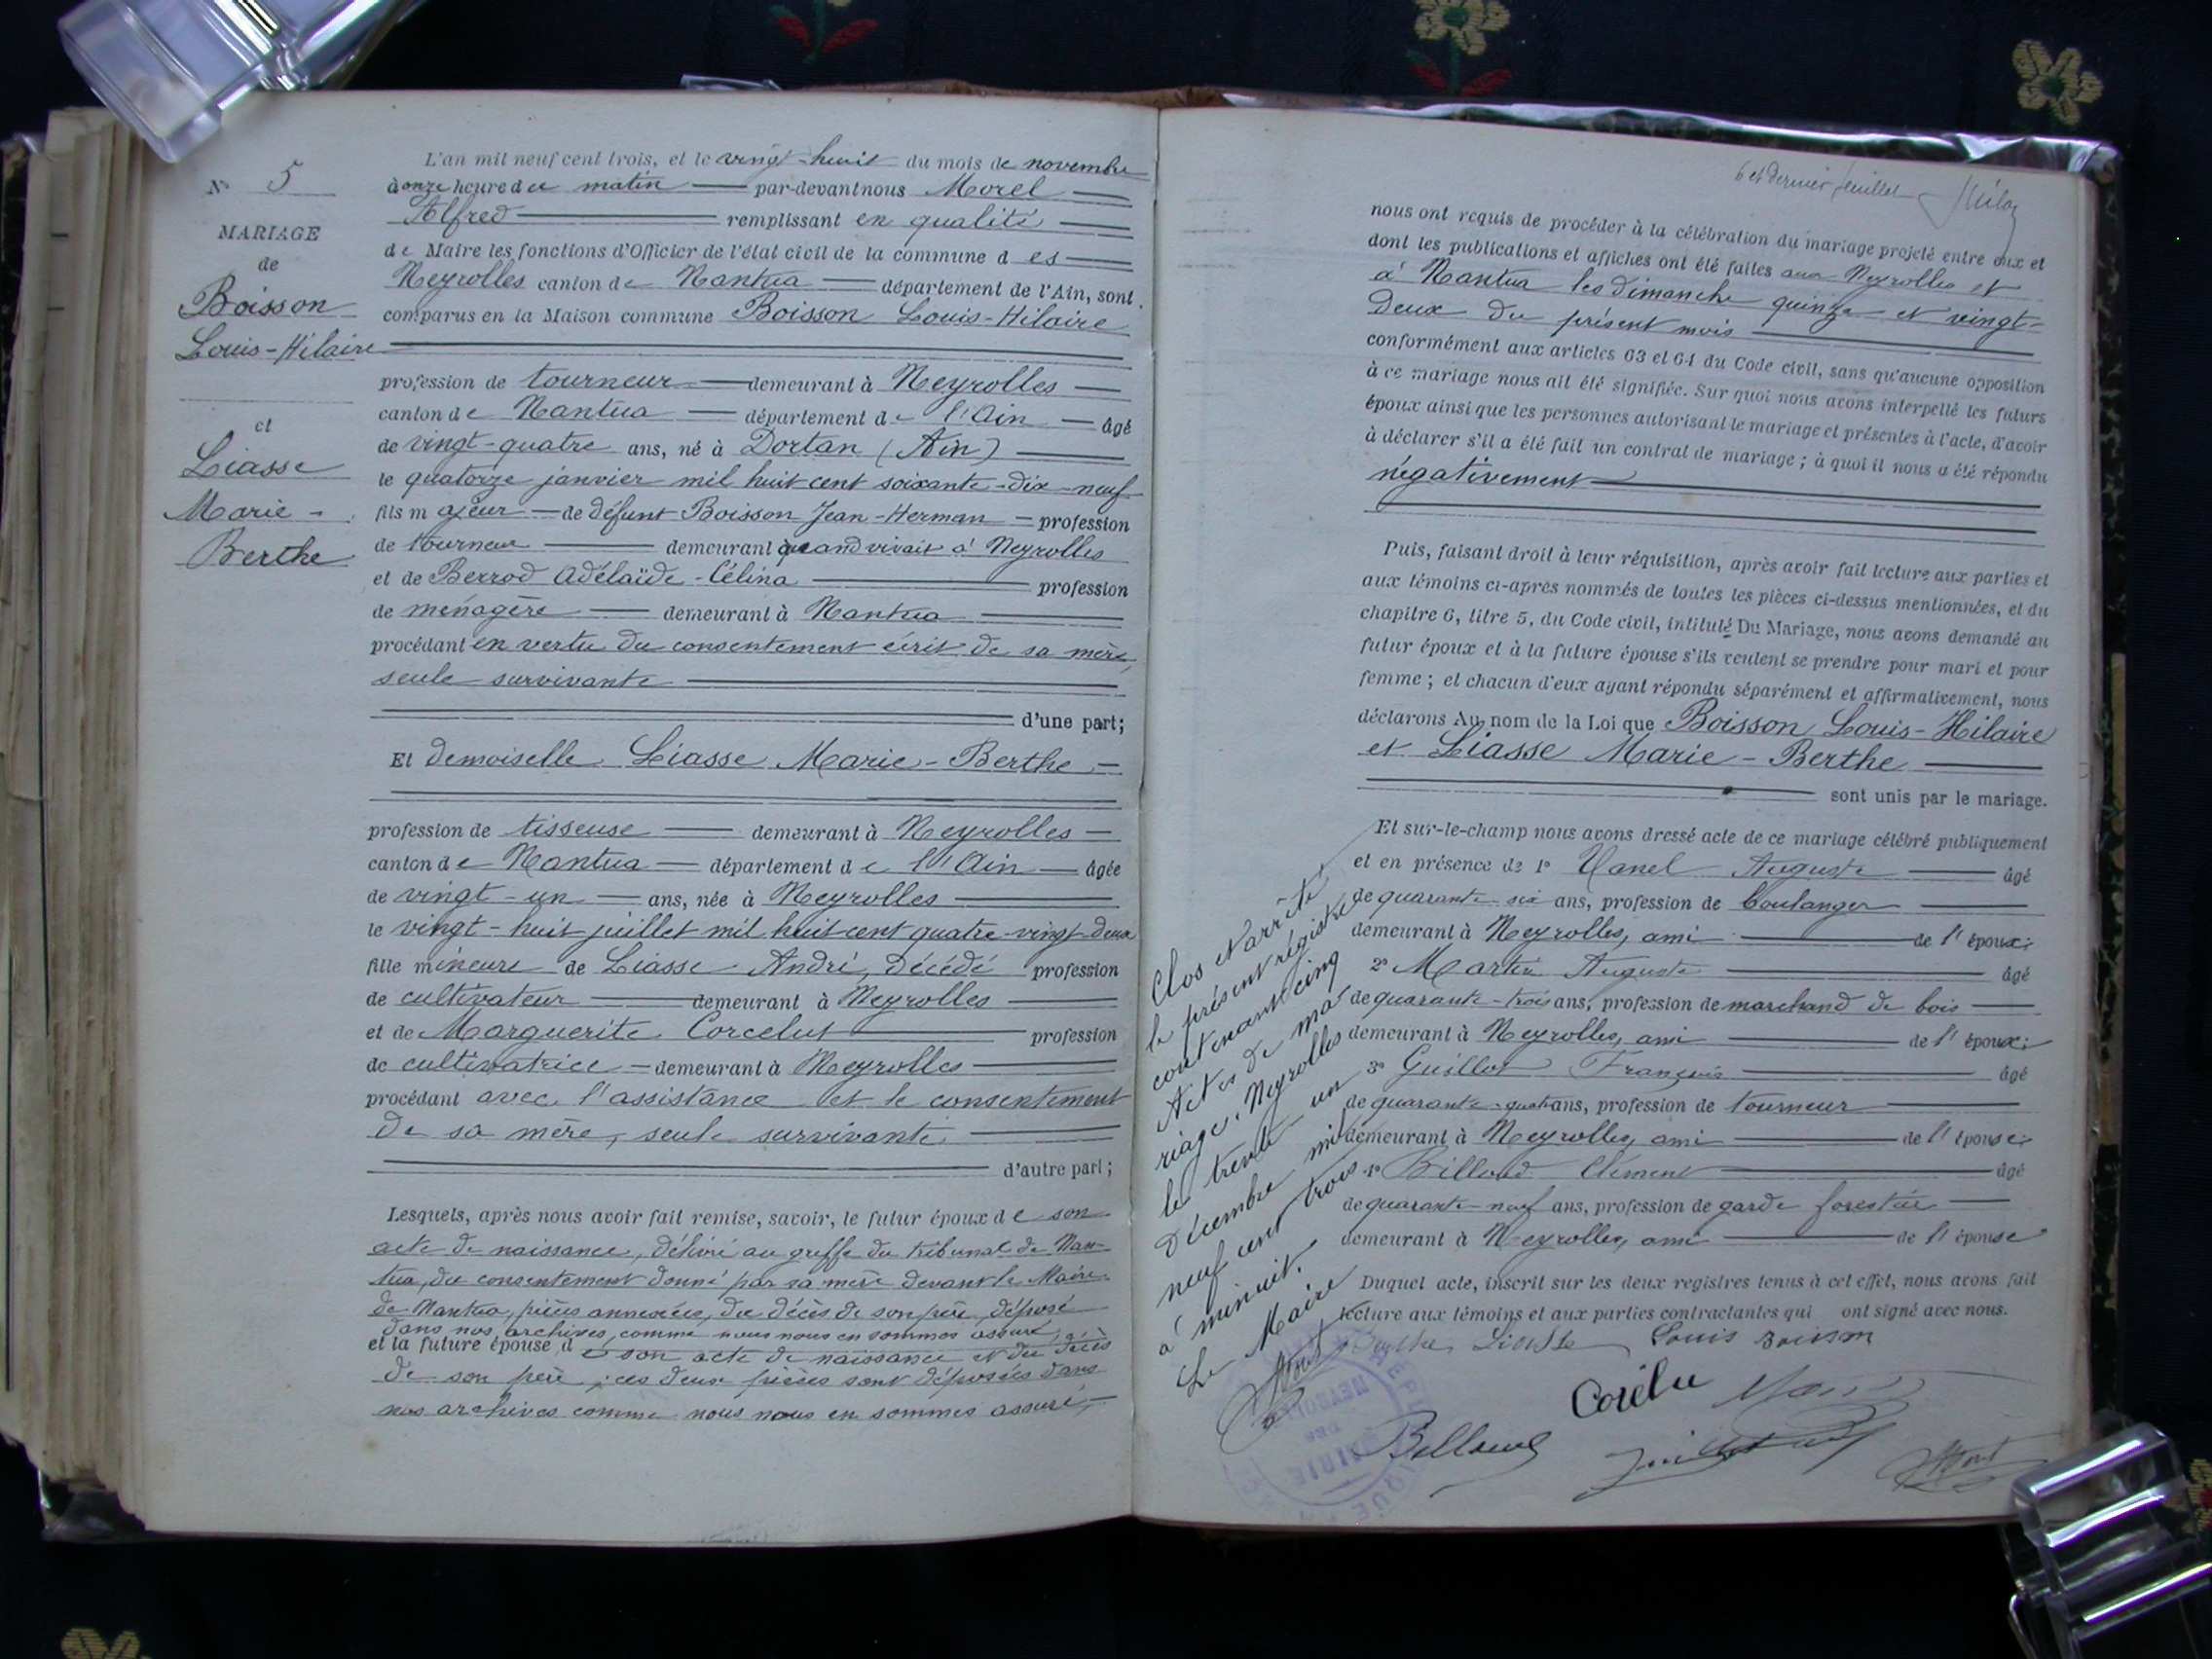 N° 5
MARIAGE
de
Boisson
Louis-Hilaire
et
Liasse
Marie-
Berthe
L'an mil neuf cent trois, et le vingt-huit du mois de novembre
à onze heure du matin par-devant nous Morel
Alfred remplissant en qualité
de Maire les fonctions d'Officier de l'état civil de la commune des
Neyrolles canton de Nantua département de l'Ain, sont
comparus en la Maison commune Boisson Louis-Hilaire
profession de tourneur demeurant à Neyrolles
canton de Nantua département de l'Ain âgé
de vingt-quatre ans, né à Dortan (Ain)
le quatorze janvier mil huit cent soixante-dix-neuf
fils majeur de défunt Boisson Jean-Herman profession
de tourneur demeurant quand vivait à Neyrolles
et de Berrod Adélaïde-Célina profession
de ménagère demeurant à Nantua
procédant en vertu du consentement écrit de sa mère,
seule survivante
d'une part;
Et demoiselle Liasse Marie-Berthe
profession de tisseuse demeurant à Neyrolles
canton de Nantua département de l'Ain âgée
de vingt-un ans, née à Neyrolles
le vingt-huit juillet mil huit cent quatre-vingt-deux
fille mineure de Liasse André, décédé profession
de cultivateur demeurant à Neyrolles
et de Marguerite Corcelut profession
de cultivatrice demeurant à Neyrolles
procédant avec l'assistance et le consentement
de sa mère, seule survivante
d'autre part;
Lesquels, après nous avoir fait remise, savoir, le futur époux de son
acte de naissance, délivré au greffe du tribunal de Nan-
tua, du consentement donné par sa mère devant le Maire
de Nantua, pièces annexées, du décès de son père, déposé
dans nos archives, comme nous nous en sommes assuré,
et la future épouse, de son acte de naissance et du décès
de son père, ces deux pièces sont déposées dans
nos archives comme nous nous en sommes assuré,
6 et dernier feuillet
nous ont requis de procéder à la célébration du mariage projeté entre eux et
dont les publications et affiches ont été faites aux Neyrolles et
à Nantua les dimanche quinze et vingt-
deux du présent mois
conformément aux articles 63 et 64 du Code civil, sans qu'aucune opposition
à ce mariage nous ait été signifiée. Sur quoi nous avons interpellé les futurs
époux ainsi que les personnes autorisant le mariage et présentes à l'acte, d'avoir
à déclarer s'il a été fait un contrat de mariage ; à quoi il nous a été répondu
négativement
Puis, faisant droit à leur réquisition, après avoir fait lecture aux parties et
aux témoins ci-après nommés de toutes les pièces ci-dessus mentionnées, et du
chapitre 6, titre 5, du Code civil, intitulé Du Mariage, nous avons demandé au
futur époux et à la future épouse s'ils veulent se prendre pour mari et pour
femme ; et chacun d'eux ayant répondu séparément et affirmativement, nous
déclarons Au nom de la Loi que Boisson Louis-Hilaire
et Liasse Marie-Berthe
sont unis par le mariage.
Et sur-le-champ nous avons dressé acte de ce mariage célébré publiquement
et en présence de 1° Auguste âgé
de quarante-six ans, profession de boulanger
demeurant à Neyrolles, ami de l'époux;
2° Martin Auguste âgé
de quarante-trois ans, profession de marchand de bois
demeurant à Neyrolles, ami de l'époux;
3° Guillot François âgé
de quarante-quat ans, profession de tourneur
demeurant à Neyrolles, ami de l'épouse;
4° Billoud Clément âgé
de quarante-neuf ans, profession de garde forestier
demeurant à Neyrolles, ami de l'épouse
Duquel acte, inscrit sur les deux registres tenus à cet effet, nous avons fait
lecture aux témoins et aux parties contractantes qui ont signé avec nous.
Clos et arrêté
le présent régistre
contenant cinq
Actes de ma-
riage. Neyrolles
le trente-un
décembre mil
neuf cent trois
à minuit.
Le Maire
Berthe Liasse Louis Boisson
MAIRIE DES NEYROLLES